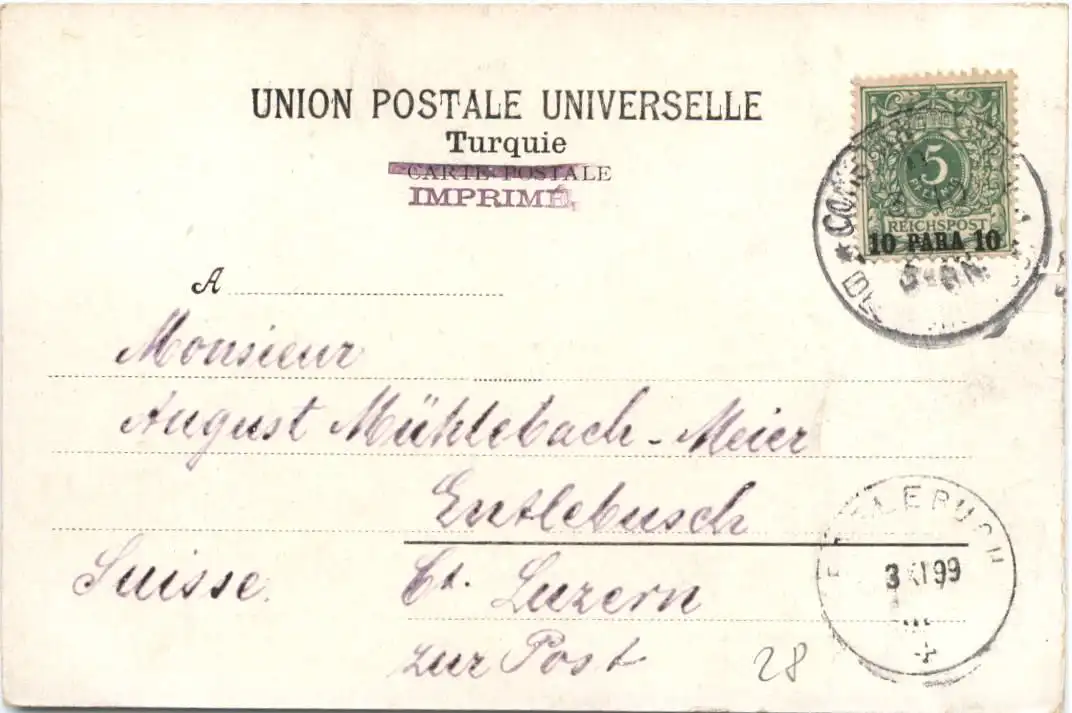 UNION POSTALE UNIVERSELLE
Turquie
CARTE POSTALE
IMPRIMÉ.
5
PFENNIG
REICHSPOST
10 PARA 10
A
Monsieur
August Mühlebach-Meier
Entlebusch
Suisse. Ct. Luzern
zur Post
28
ENTLEBUCH
3 XI 99